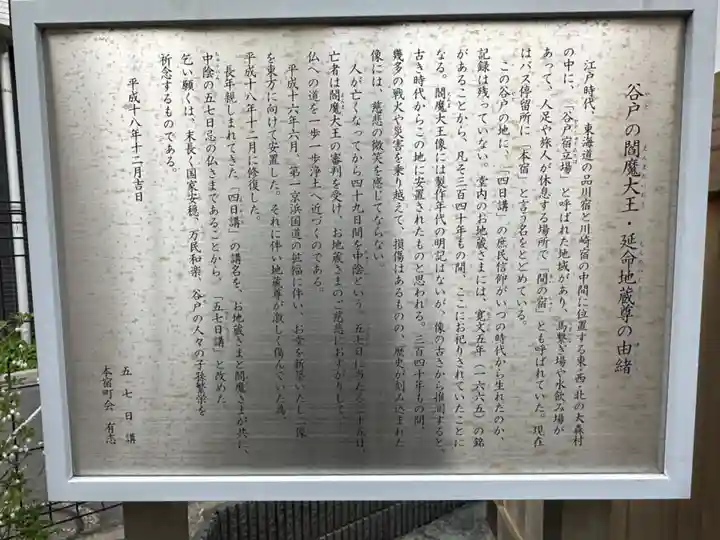 谷戸の閻魔大王・延命地蔵尊の由緒
江戸時代、東海道の品川宿と川崎宿の中間に位置する東・西・北の大森村
の中に、「谷戸宿立場」と呼ばれた地域があり、馬繋ぎ場や水飲み場が
あって、人足や旅人が休息する場所で「間の宿」とも呼ばれていた。現在
はバス停留所に「本宿」と言う名をとどめている。
この谷戸の地に、「四日講」の庶民信仰がいつの時代から生れたのか、
記録は残っていない。堂内のお地蔵さまには、寛文五年（一六六五）の銘
があることから、凡そ三百四十年もの間、ここにお祀りされていたことに
なる。閻魔大王像には製作年代の明記はないが、像の古さから推測すると、
古き時代からこの地に安置されたものと思われる。三百四十年もの間、
幾多の戦火や災害を乗り越えて、損傷はあるものの、歴史が刻み込まれた
像には、慈悲の微笑を感じてならない。
人が亡くなってから四十九日間を中陰という。五七日に当たる三十五日、
亡者は閻魔大王の審判を受け、お地蔵さまのご慈悲におすがりして、
仏への道を一歩一歩浄土へ近づくのである。
平成十六年六月、第一京浜国道の拡幅に伴い、お堂を新築いたし二像
を東方に向けて安置した。それに伴い地蔵尊が激しく傷んでいた為、
平成十八年十二月に修復した。
長年親しまれてきた「四日講」の講名を、お地蔵さまと閻魔さまが共に、
中陰の五七日忌の仏さまであることから、「五七日講」と改めた。
乞い願くは、末長く国家安穏、万民和楽、谷戸の人々の子孫繁栄を
祈念するものである。
平成十八年十二月吉日
五七日講
本宿町会 有志